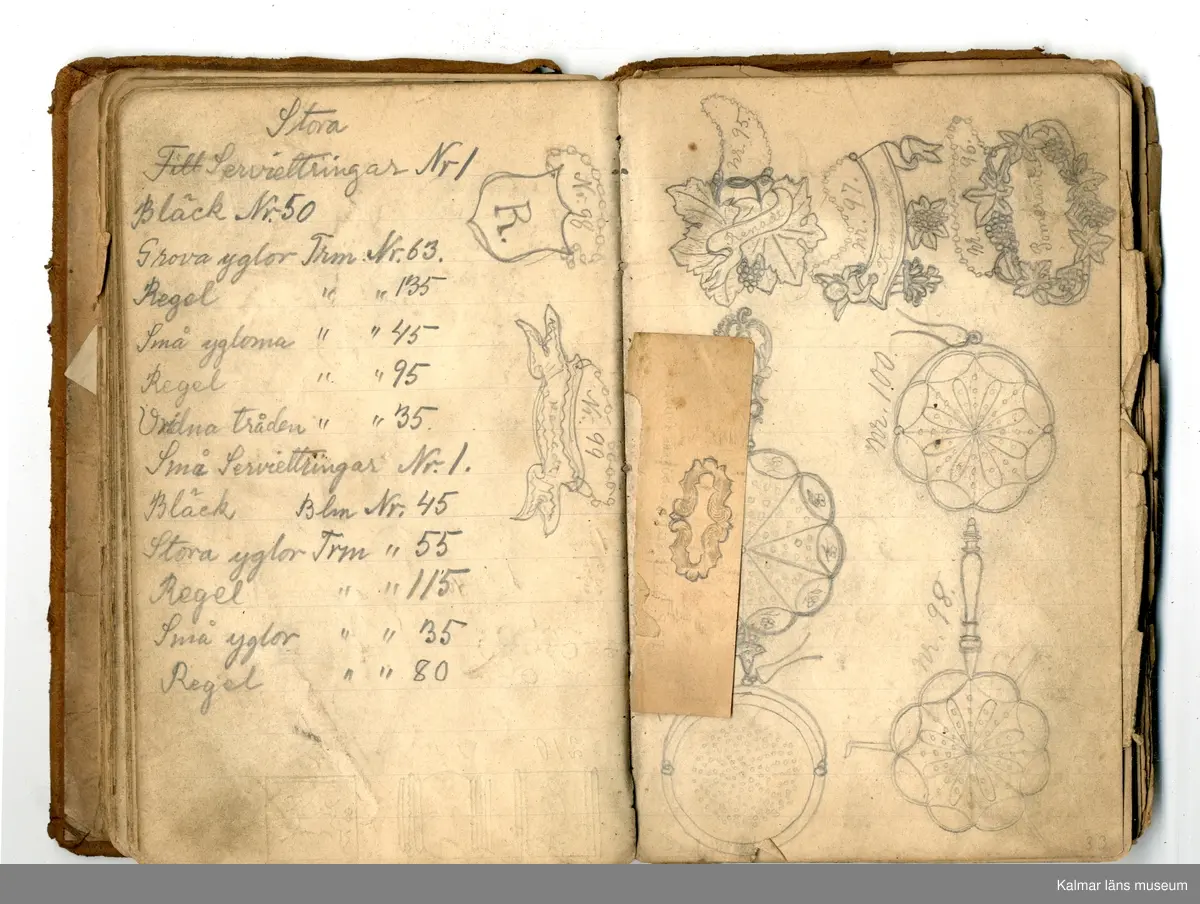 Stora
Filt Serviettringar Nr 1
Bläck Nr. 50
Grova yglor Trm Nr. 63.
Regel " " 135
Små yglorna " " 45
Regel " " 95
Vridna tråden " " 35.
Små Serviettringar Nr. 1.
Bläck Blm Nr. 45
Stora yglor Trm " 55
Regel " " 115
Små yglor " " 35
Regel " " 80
Nr. 96
R.
Nr. 99
Nr. 95.
Nr. 97.
Nr. 96.
Nr. 100
Nr. 98.
33
Kalmar läns museum